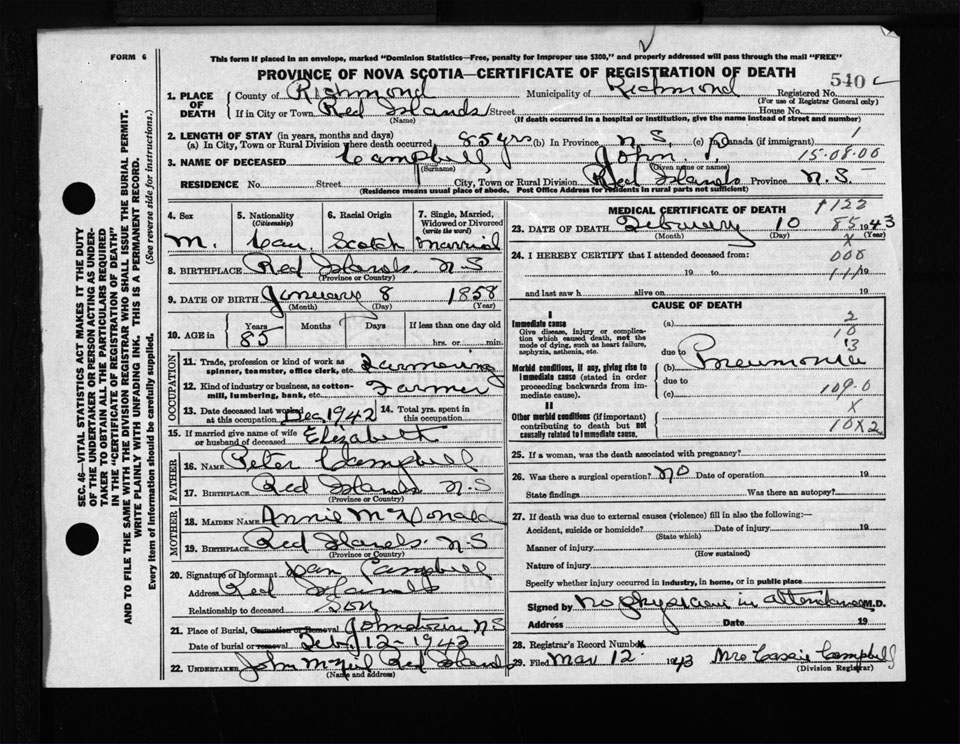 FORM 6
This form if placed in an envelope, marked "Dominion Statistics—Free, penalty for improper use $300," and properly addressed will pass through the mail "FREE"
PROVINCE OF NOVA SCOTIA—CERTIFICATE OF REGISTRATION OF DEATH
540 c
1. PLACE OF DEATH
County of Richmond Municipality of Richmond Registered No.
(For use of Registrar General only)
If in City or Town Red Islands Street House No.
(Name) (If death occurred in a hospital or institution, give the name instead of street and number)
2. LENGTH OF STAY (in years, months and days)
(a) In City, Town or Rural Division where death occurred 85 yrs (b) In Province N.S. (c) In Canada (if immigrant) 1
3. NAME OF DECEASED Campbell John P 15-08-00
(Surname) (Given name or names)
RESIDENCE No. Street City, Town or Rural Division Red Islands Province N.S.
(Residence means usual place of abode. Post Office Address for residents in rural parts not sufficient)
4. Sex 5. Nationality (Citizenship) 6. Racial Origin 7. Single, Married, Widowed or Divorced (write the word)
M. Can. Scotch Married
8. BIRTHPLACE Red Islands. N.S
(Province or Country)
9. DATE OF BIRTH January 8 1858
(Month) (Day) (Year)
10. AGE in Years Months Days If less than one day old
85 hrs. or min.
OCCUPATION
11. Trade, profession or kind of work as spinner, teamster, office clerk, etc. Farmering
12. Kind of industry or business, as cotton-mill, lumbering, bank, etc. Farmer
13. Date deceased last worked at this occupation. Dec 1942 14. Total yrs. spent in this occupation.
15. If married give name of wife or husband of deceased Elizabeth
FATHER
16. NAME Peter Campbell
17. BIRTHPLACE Red Islands N.S
(Province or Country)
MOTHER
18. MAIDEN NAME Annie McDonald
19. BIRTHPLACE Red Islands. N.S
(Province or Country)
20. Signature of informant Dan Campbell
Address Red Islands
Relationship to deceased Son
21. Place of Burial, Cremation or Removal Johnstown N.S
Date of burial or removal Feby 12 - 1943
22. UNDERTAKER John McNeil Red Islands
(Name and address)
MEDICAL CERTIFICATE OF DEATH †122
23. DATE OF DEATH February 10 85 1943
(Month) (Day) (Year)
X
24. I HEREBY CERTIFY that I attended deceased from: 000
19 to 111 19
and last saw h alive on 19
CAUSE OF DEATH
I
Immediate cause
Give disease, injury or complication which caused death, not the mode of dying, such as heart failure, asphyxia, asthenia, etc.
(a) 2
10
13
due to
Morbid conditions, if any, giving rise to immediate cause (stated in order proceeding backwards from immediate cause).
(b) Pneumonia
due to
(c) 109.0
II
Other morbid conditions (if important) contributing to death but not causally related to immediate cause.
X
10X2
25. If a woman, was the death associated with pregnancy?
26. Was there a surgical operation? No Date of operation 19
State findings Was there an autopsy?
27. If death was due to external causes (violence) fill in also the following:—
Accident, suicide or homicide? Date of injury 19
(State which)
Manner of injury
(How sustained)
Nature of injury
Specify whether injury occurred in industry, in home, or in public place
Signed by No physician in attendance M.D.
Address Date 19
28. Registrar's Record Number
29. Filed Mar 12 1943 Mrs Cassie Campbell
(Division Registrar)
SEC. 46—VITAL STATISTICS ACT MAKES IT THE DUTY OF THE UNDERTAKER OR PERSON ACTING AS UNDERTAKER TO OBTAIN ALL THE PARTICULARS REQUIRED IN THE "CERTIFICATE OF REGISTRATION OF DEATH" AND TO FILE THE SAME WITH THE DIVISION REGISTRAR WHO SHALL ISSUE THE BURIAL PERMIT.
WRITE PLAINLY WITH UNFADING INK. THIS IS A PERMANENT RECORD.
Every item of information should be carefully supplied. (See reverse side for instructions.)